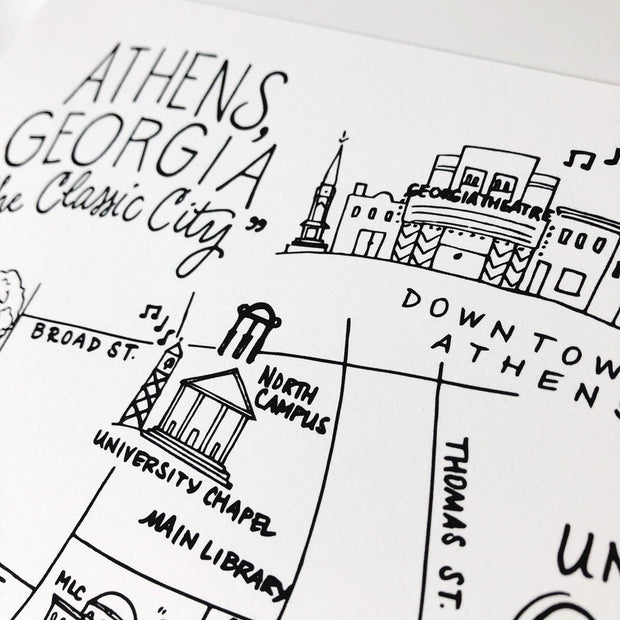 ATHENS,
GEORGIA
he Classic City"
GEORGIA THEATRE
DOWNTOW
ATHENS
BROAD ST.
NORTH
CAMPUS
UNIVERSITY CHAPEL
MAIN LIBRARY
THOMAS ST.
UN
MLC